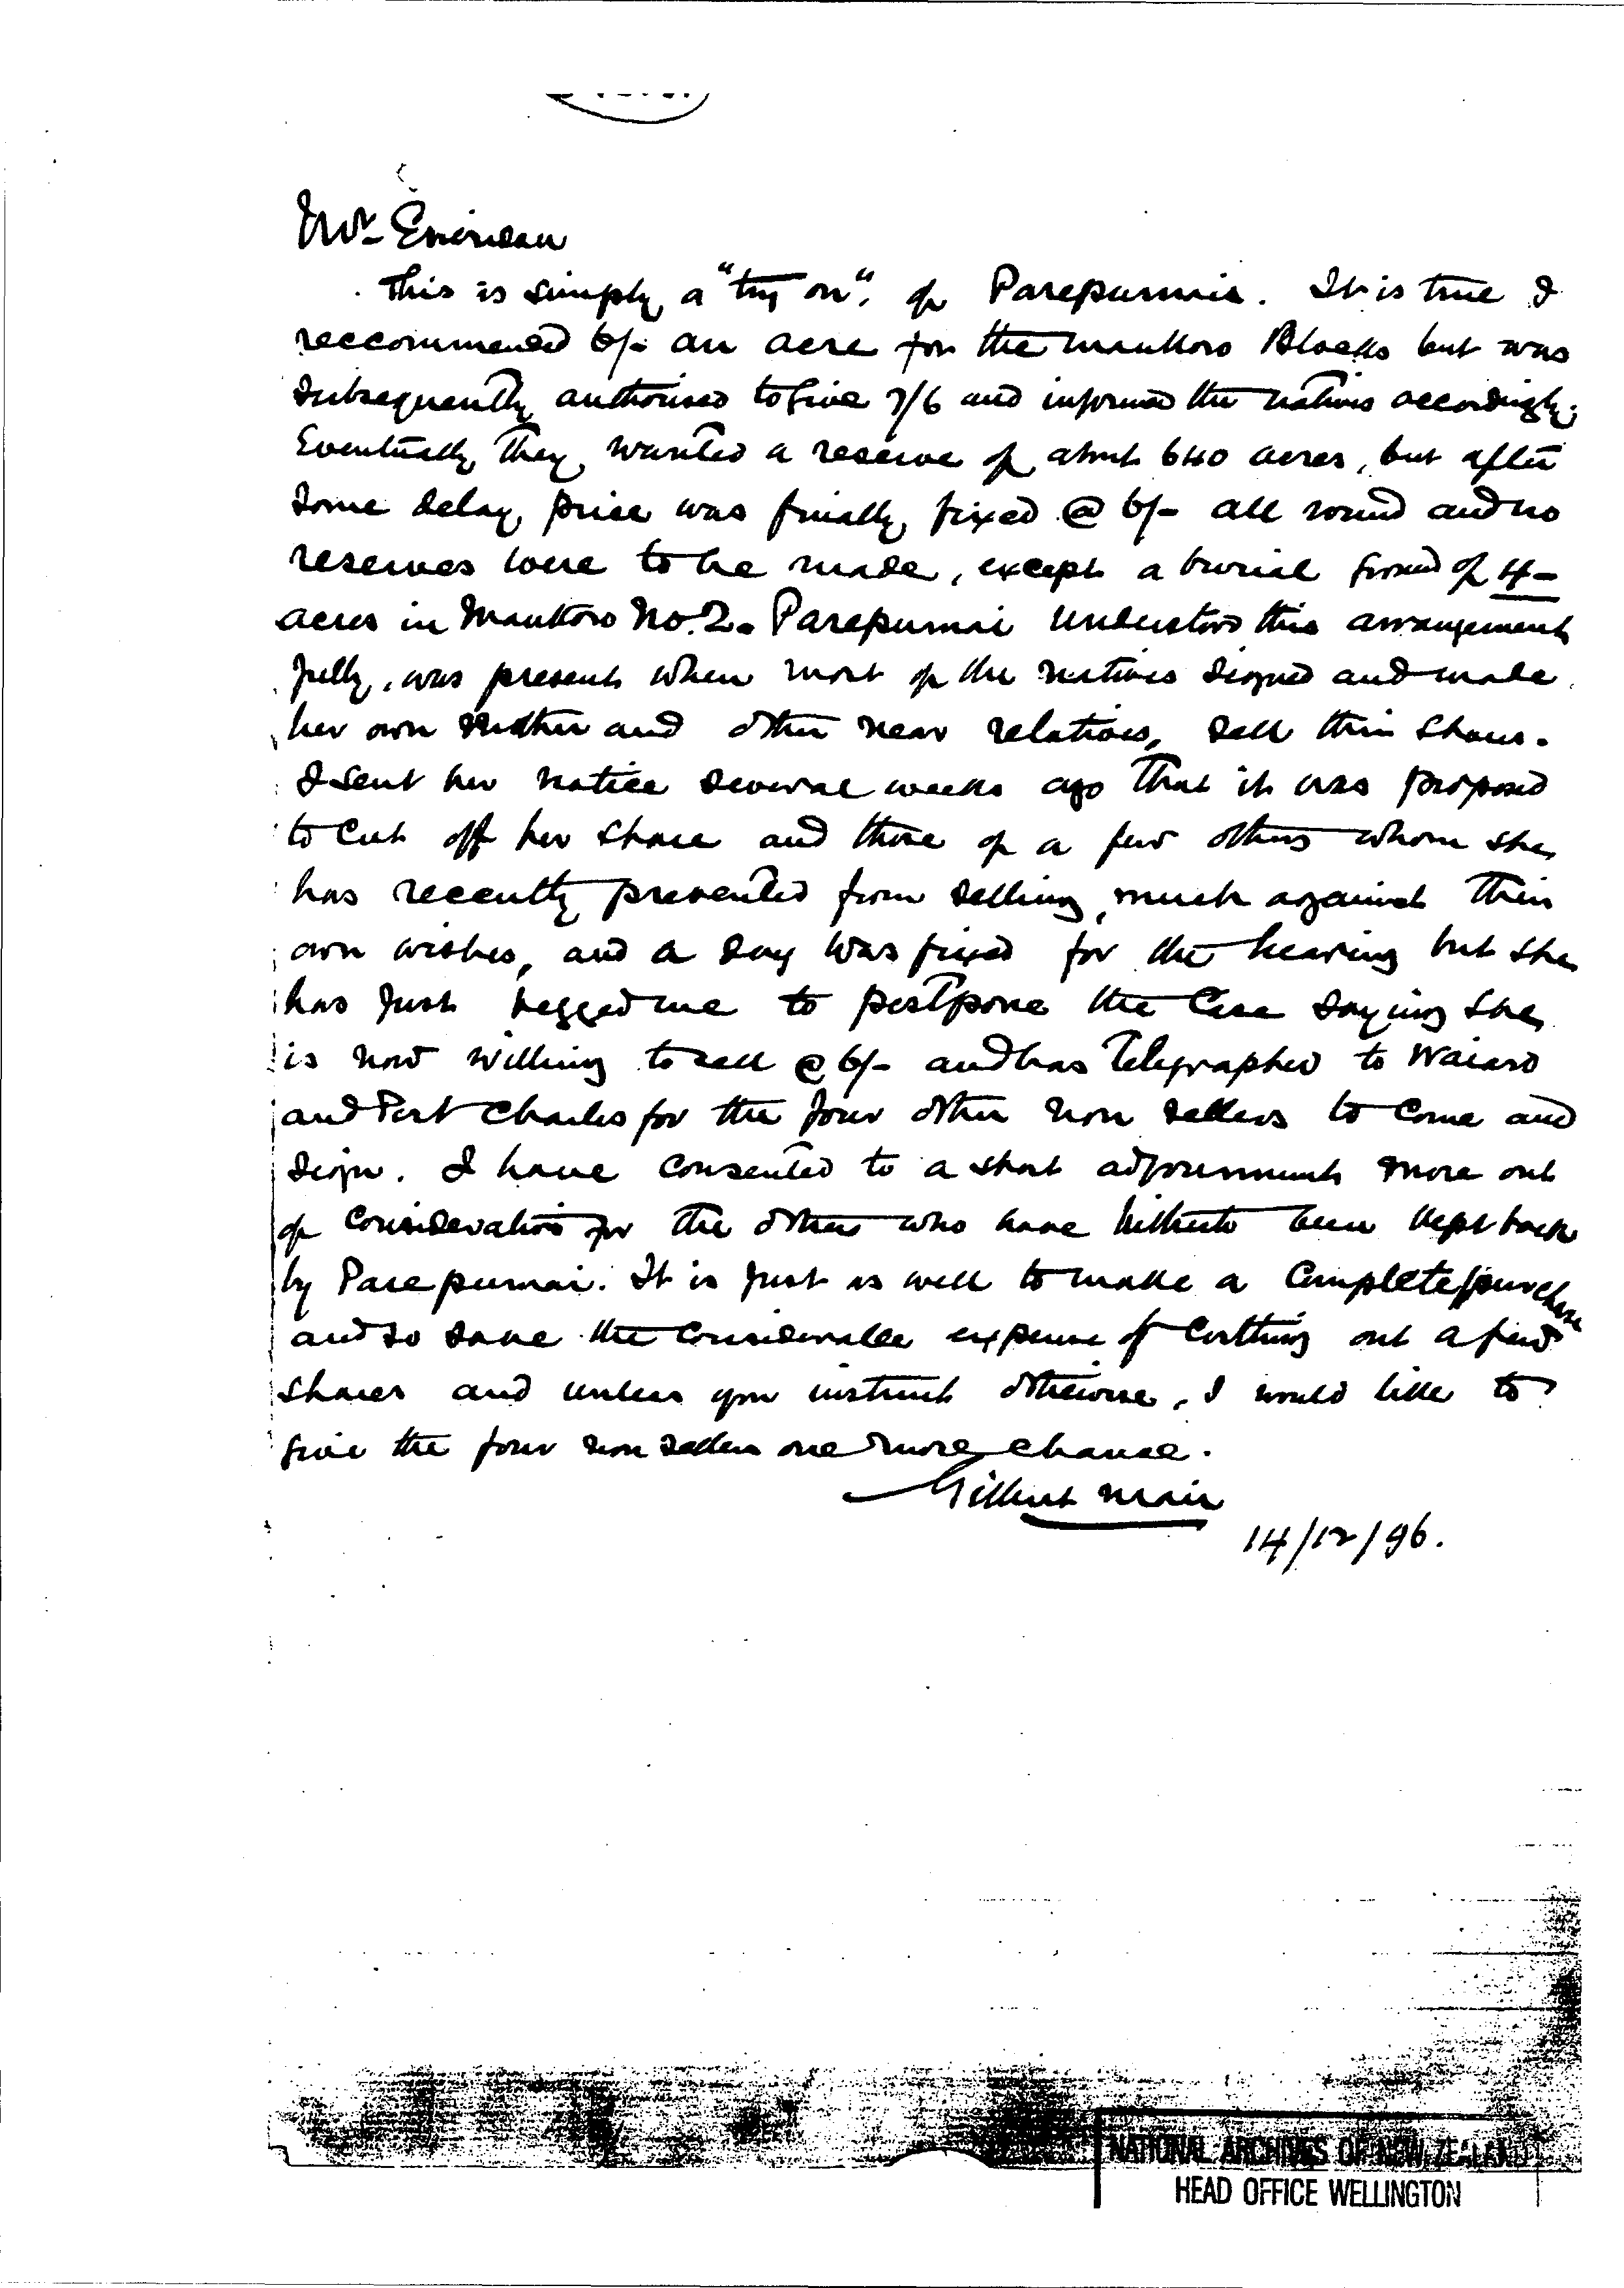 Mr Sheridan
This is simply a "try on" of Parepumai. It is true I
reccommended 6/- an acre for the Maukoro Blocks but was
subsequently authorised to give 7/6 and informed the natives accordingly.
Eventually they wanted a reserve of about 640 acres, but after
some delay price was finally fixed @ 6/- all round and no
reserves were to be made, except a burial ground of 4-
acres in Maukoro No. 2. Parepumai understood this arrangement
fully, was present when most of the natives signed and made
her own mother and other near relatives, sell their shares.
I sent her notice several weeks ago that it was proposed
to cut off her share and those of a few others whom she
has recently prevented from selling, much against their
own wishes, and a day was fixed for the hearing but she
has just begged me to postpone the case saying she
is now willing to sell @ 6/- and has telegraphed to Waiaro
and Port Charles for the four other non sellers to come and
sign. I have consented to a short adjournment more out
of consideration for the others who have hitherto been kept back
by Parepumai. It is just as well to make a complete purchase
and so save the considerable expense of cutting out a few
shares and unless you instruct otherwise, I would like to
give the four non sellers one more chance.
Gilbert Mair
14/12/96.
NATIONAL ARCHIVES OF NEW ZEALAND
HEAD OFFICE WELLINGTON